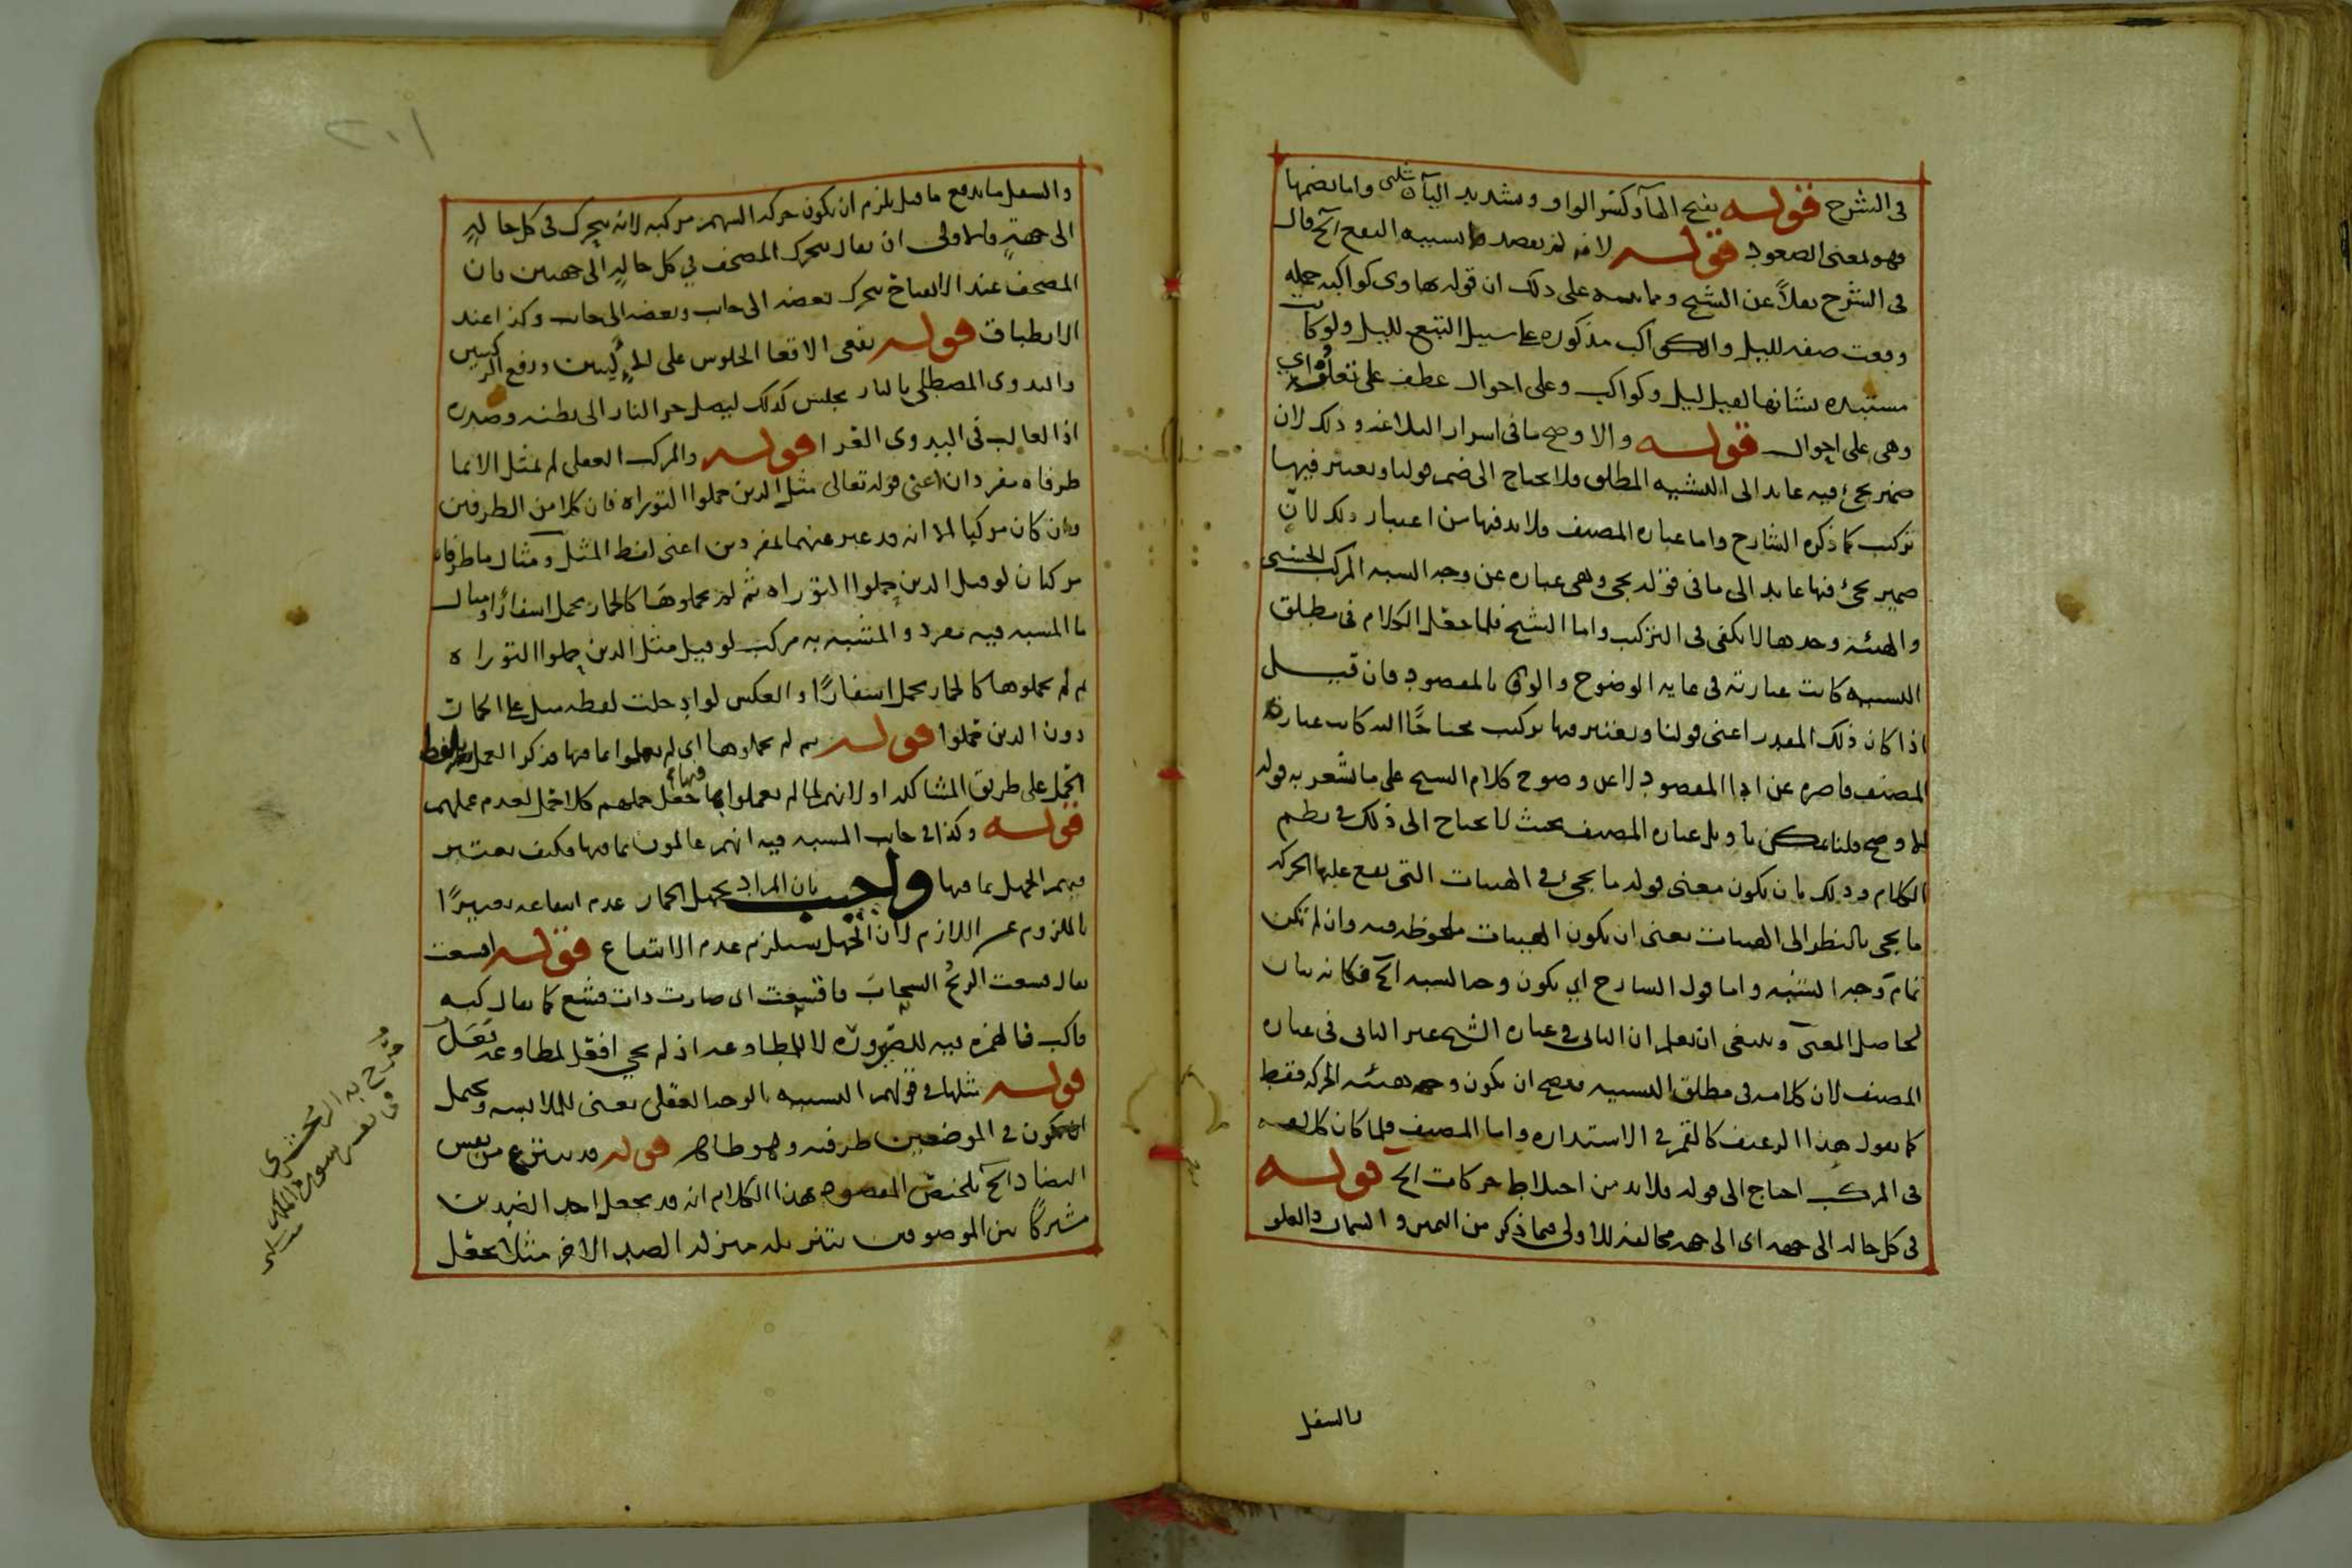 في الشرح قوله بفتح الهآء وكسر الواو وتشديد اليآء شلبى واما بضمها
فهو بمعنى الصعود قوله لانه لم يقصد تشبيه النقع الخ قال
في الشرح نقلاً عن الشيخ ومما ينبه على ذلك ان قوله تهاوى كواكبه جملة
وقعت صفة لليل والكواكب مذكورة على سبيل التبع لليل ولو كانت
مستبدة بشانها لقيل ليل وكواكب وعلى احوال عطف على تعلو اي
وهى على احوال قوله والاوضح ما في اسرار البلاغة وذلك لان
ضمير يجئ فيه عايد الى التشبيه المطلق فلا يحتاج الى ضم قولنا ويعتبر فيها
تركيب كما ذكره الشارح واما عبارة المصنف فلا بد فيها من اعتبار ذلك لان
ضمير يجئ فيها عايد الى ما في قوله يجى وهى عبارة عن وجه الشبه المركب الحسى
والهيئة وحدها لا تكفى فى التركيب واما الشيخ فلما جعل الكلام فى مطلق
التشبيه كانت عبارته فى غاية الوضوح والوفى بالمقصود فان قيل
اذا كان ذلك المقدر اعنى قولنا ويعتبر فيها تركيب محتاجًا اليه كانت عبارة
المصنف قاصرة عن اداء المقصود لا عن وضوح كلام الشيخ على ما يشعر به قوله
الاوضح قلنا يمكن تاويل عبارة المصنف بحيث لا يحتاج الى ذلك في نظم
الكلام وذلك بان يكون معنى قوله ما يجئ في الهيئات التى يقع عليها الحركة
ما يجى بالنظر الى الهيئات بمعنى ان يكون الهيئات ملحوظة فيه وان لم تكن
تمام وجه الشبه واما قول الشارح اي يكون وجه الشبه الخ فكانه بيان
لحاصل المعنى وينبغى ان يعلم ان الثانى في عبارة الشيخ غير الثانى فى عبارة
المصنف لان كلامه فى مطلق التشبيه فيصح ان يكون وجهه هيئة الحركة فقط
كما يقول هذا الرغيف كالقمر في الاستدارة واما المصنف فلما كان كلامه
فى المركب احتاج الى قوله فلا بد من اختلاط حركات الخ قوله
فى كل حالة الى جهة اى الى جهة مخالفة للاولى فيما ذكر من اليمين والشمال والعلو
والسفل
٢٠١
والسفل ما يدفع ما قيل يلزم ان يكون حركة السهم مركبة لانه يتحرك فى كل حالةٍ
الى جهةٍ والاولى ان يقال يتحرك المصحف في كل حالةٍ الى جهتين فان
المصحف عند الانفتاح يتحرك بعضه الى جانب وبعضه الى جانب وكذا عند
الانطباق قوله يقعى الاقعا الجلوس على الاليتين ورفع الركبتين
والبدوى المصطلى بالنار يجلس كذلك ليصل حر النار الى بطنه وصدره
اذ الغالب فى البدوى العرا قوله والمركب العقلى لم يمثل الا بما
طرفاه مفردان اعنى قوله تعالى مثل الذين حملوا التوراة فان كلا من الطرفين
وان كان مركبا الا انه قد عبر عنهما بمفردين اعنى لفظ المثل ومثال ما طرفاه
مركبان لو قيل الذين حملوا التوراة ثم لم يحملوها كالحمار يحمل اسفارًا ومثال
ما المشبه فيه مفرد والمشبه به مركب لو قيل مثل الذين حملوا التوراة
ثم لم يحملوها كالحمار يحمل اسفارًا والعكس لو ادخلت لفظة مثل على الحمار
دون الذين حملوا قوله ثم لم يحملوها اى لم يعملوا بما فيها فذكر العمل بلفظ
الحمل على طريق المشاكلة او لانهم لما لم يعملوا بما فيها جعل حملهم كلا حمل لعدم عملهم
قوله وكذا في جانب المشبه فيه انهم عالمون بما فيها فكيف يعتبر
فيهم الجهل بما فيها واجيب بان المراد بجهل الحمار عدم انتفاعه تعبيرًا
بالملزوم عن اللازم لان الجهل يستلزم عدم الانتفاع قوله اقشعت
يقال قشعت الريحُ السحابَ فاقشعت اى صارت ذات قشع كما يقال كبه
فاكب فالهمزة فيه للصيرورة لا للمطاوعة اذ لم يجى افعل لمطاوعة فَعَلَ
قوله مثلها في قولهم التشبيه بالوجه العقلى يعنى للملابسة ويحتمل
ان يكون في الموضعين ظرفية وهو ظاهر قوله قد ينتزع من نفس
التضاد الخ تلخيص المقصود بهذا الكلام انه قد يجعل احد الضدين
مشتركًا بين الموصوفين بتنزيله منزلة الضد الاخر مثلا يجعل
صرح به الزمخشرى
فى تفسير سورة الملك
شلبى